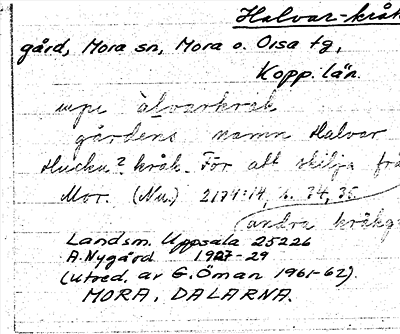 Halvar-kråk
gård, Mora sn, Mora o. Orsa tg,
Kopp. län.
upi àlvarkråk
gårdens namn Halvar
Hucku? kråk. För att skilja frå
Mor. (Nu.) 2174:14, s. 34, 35
(andra kråkg
Landsm. Uppsala 25226
A. Nygård 1927-29
(utred. av G. Öman 1961-62).
MORA, DALARNA.